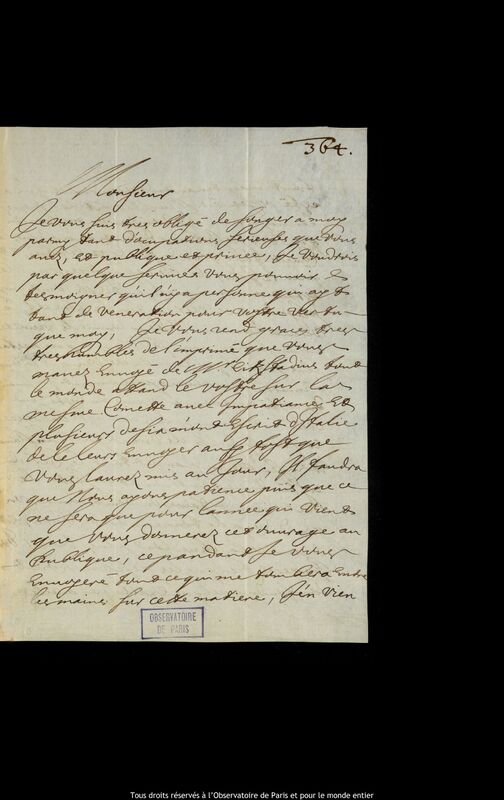 364.
Monsieur
Je vous suis tres obligé de songer a moy
parmy tant d'occupations serieuses que vous
avez, et publique et privee, Je voudrois
par quelque service vous pouvoir
tesmoigner qu'il n'y a personne qui ayt
tant de veneration pour vostre vertu
que moy, Je vous rend graces tres
tres humbles de l'imprimé que vous
m'avez envoyé de Mr tout
le monde attand le vostre sur la
mesme Comette avec impatiance, Et
plusieurs desia m'ont escrit d'Italie
de le leurs envoyer aussy tost que
vous l'aurez mis au Jour, Il faudra
que nous ayons patience puis que ce
ne sera que pour l'annee qui vient
que vous donnerez cet ouvrage au
Publique, cepandant Je vous
envoyeré tout ce qui me tombera entre
les mains sur cette matiere, J'en vien
OBSERVATOIRE
DE PARIS
Tous droits réservés à l'Observatoire de Paris et pour le monde entier